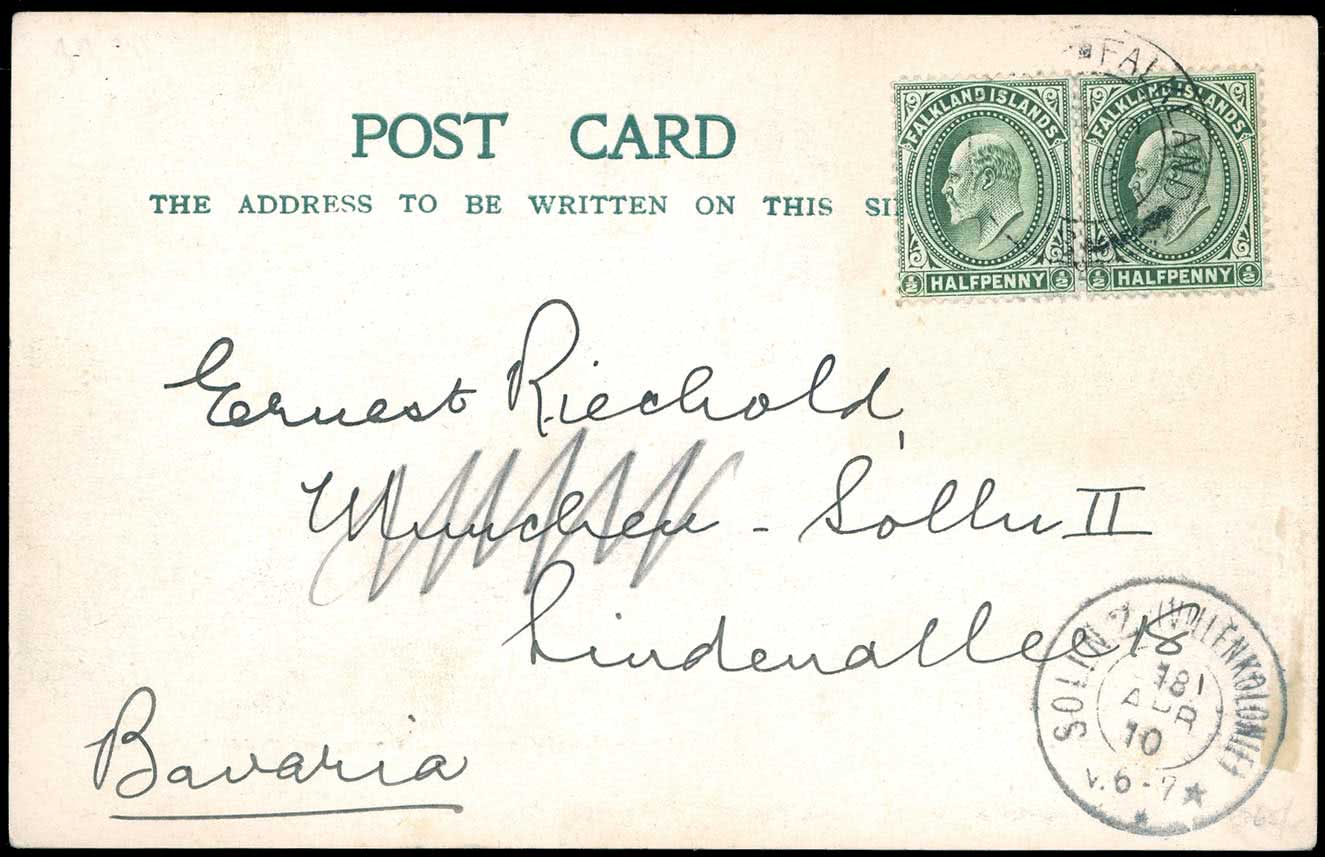 POST CARD
THE ADDRESS TO BE WRITTEN ON THIS
FALKLAND
FALKLAND ISLANDS
½ HALFPENNY ½
FALKLAND ISLANDS
½ HALFPENNY ½
Ernest Riechold,
München - Solln II
Lindenallee 18
Bavaria
SOLLN 2
18
APR
10
V. 6-7